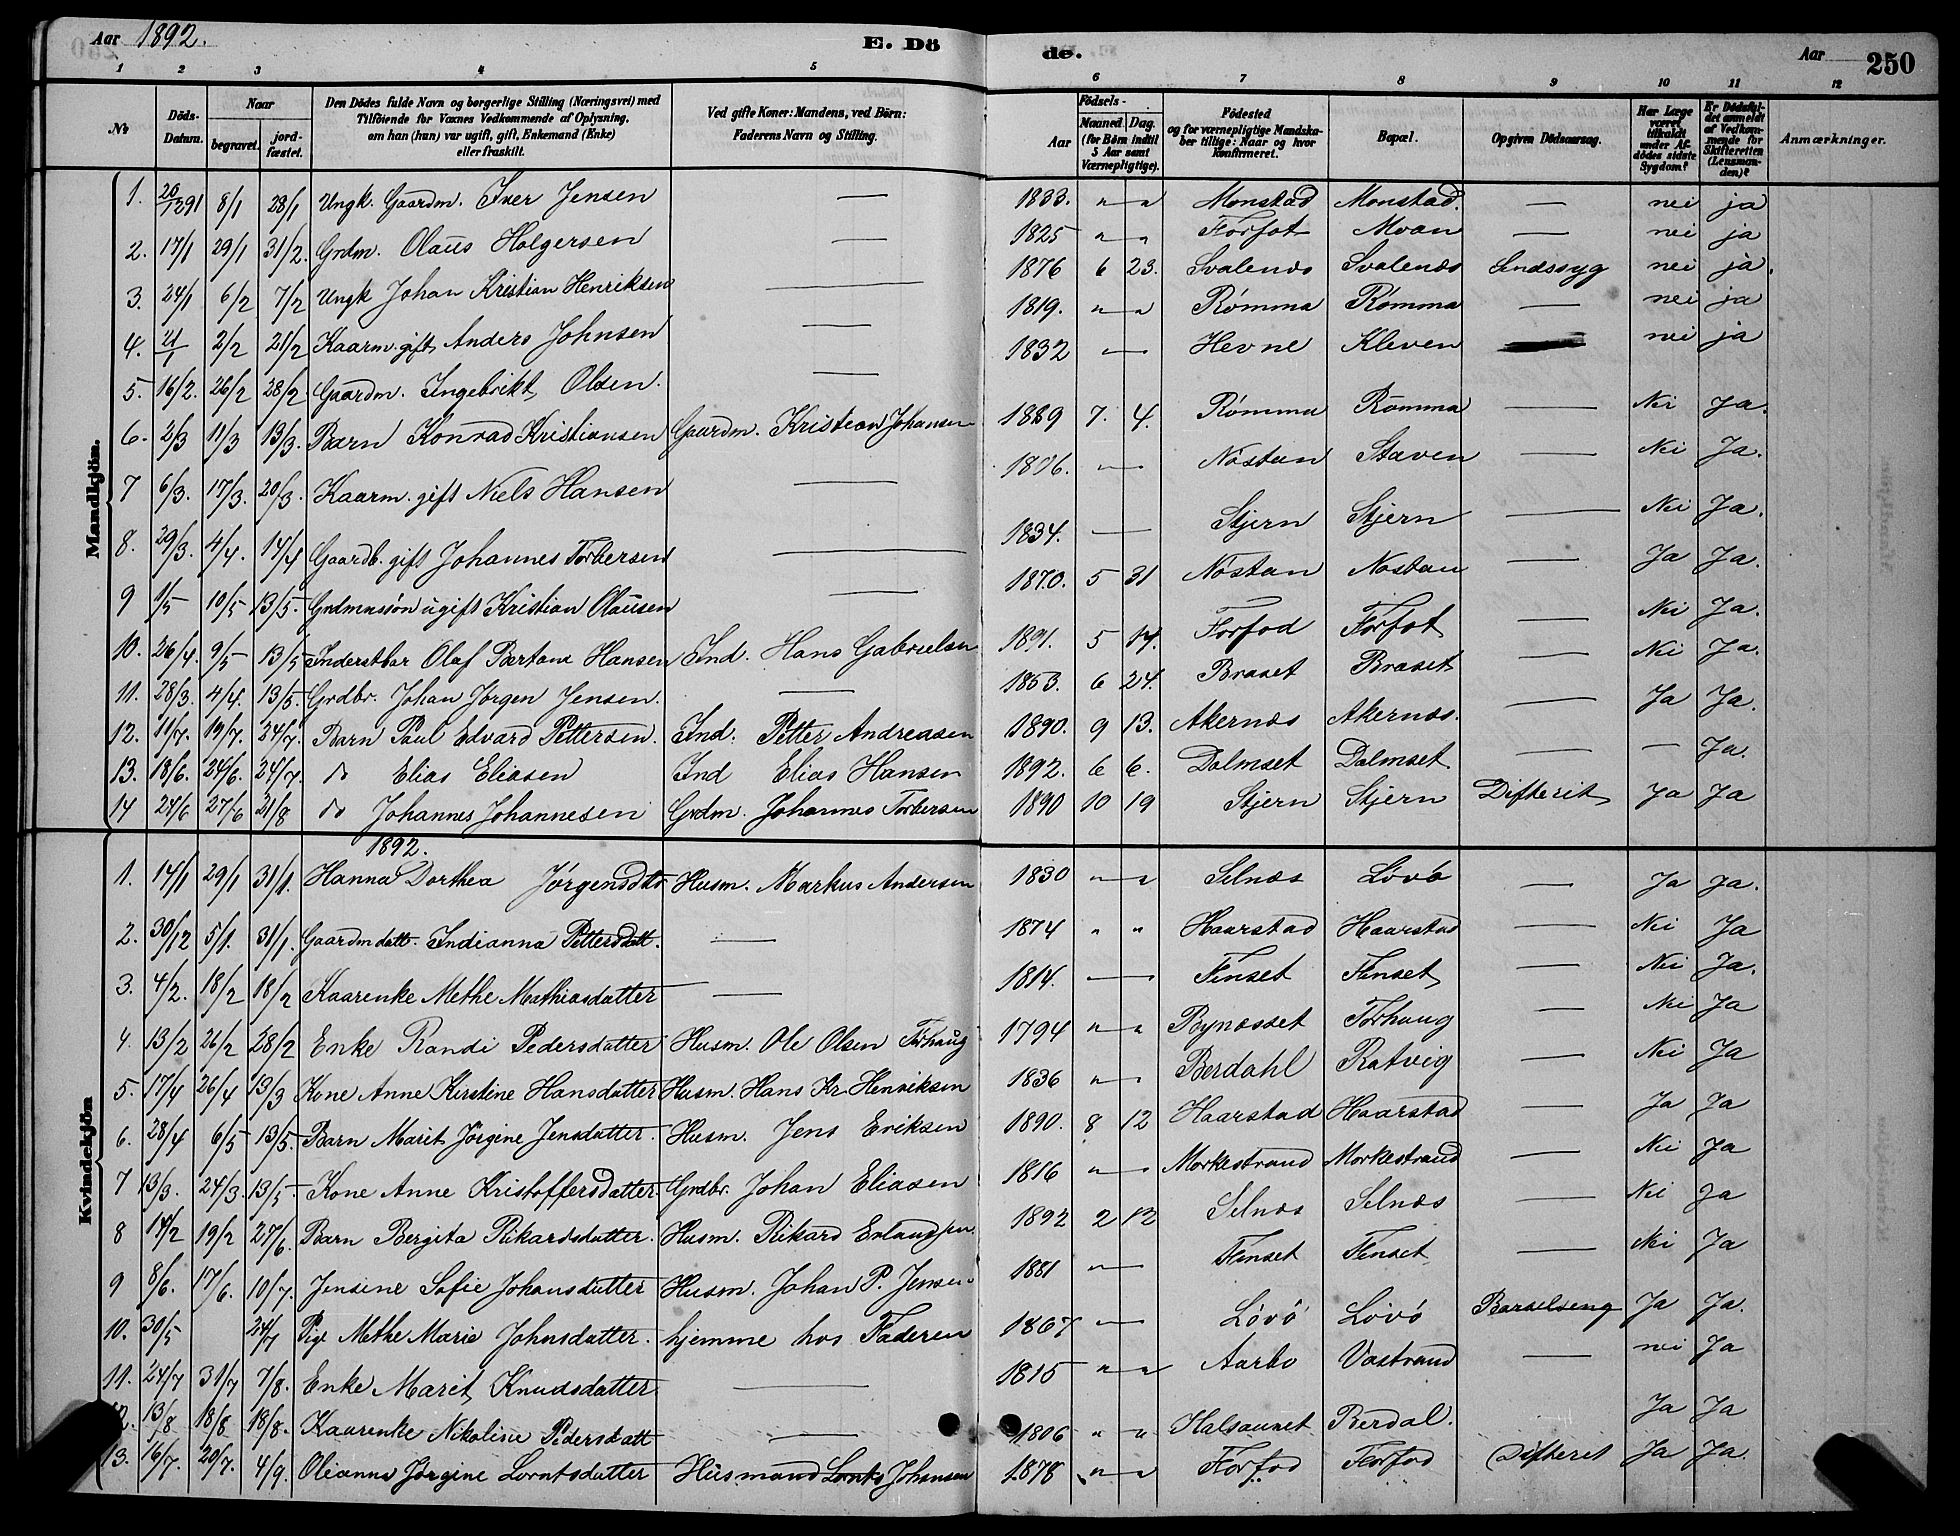 Aar 1892. E. Dö de. Aar 250
1 2 3 4 5 6 7 8 9 10 11 12
No
Döds-Datum.
Naar
begravet. jord-fæstet.
Den Dödes fulde Navn og borgerlige Stilling (Næringsvei) med
Tilföiende for Voxnes Vedkommende af Oplysning,
om han (hun) var ugift, gift, Enkemand (Enke)
eller fraskilt.
Ved gifte Koner: Mandens, ved Börn:
Faderens Navn og Stilling.
Födsels-
Aar Maaned. Dag.
(for Börn indtil
5 Aar samt
Værnepligtige).
Födested
og for værnepligtige Mandska-
ber tillige: Naar og hvor
Konfirmeret.
Bopæl.
Opgiven Dödsaarsag.
Har Læge
været
tilkaldt
under Af-
dödes sidste
Sygdom?
Er Dödsfal-
det anmeldt
af Vedkom-
mende for
Skifteretten
(Lensman-
den)?
Anmærkninger.
Mandkjön.
1. 20/12 91 8/1 28/1 Ungk. Gaardm. Iver Jensen — 1833. " " Monstad Monstad. — nei ja
2. 17/1 29/1 31/2. Grdm. Olaus Holgersen — 1825 " " Forfot Moan — nei ja
3. 24/1 6/2 7/2 Ungk Johan Kristian Henriksen — 1876 6 23. Svalenæs Svalenæs Sindssyg nei ja.
4. 21/1 2/2 21/2 Kaarm. gift Anders Johnsen — 1819. " " Römma Römma — nei ja
5. 16/2. 26/2 28/2 Gaardm. Ingebrikt Olsen. — 1832 — Hevne Kleven — nei ja
6. 2/3 11/3 13/3. Barn Konrad Kristiansen Gaardm. Kristian Johansen 1889 7. 4. Römma Römma — Nei Ja.
7 6/3. 17/3. 20/3. Kaarm. gift Niels Hansen — 1806. — Nöstan Staven — Nei Ja.
8. 29/3. 4/4. 14/4 Gaardb. gift Johannes Torbersen — 1834. — Stjern Stjern — Nei Ja.
9 1/5 10/5 13/5. Grdmanssön ugift Kristian Olausen — 1870. 5 31 Nöstan Nöstan — Ja Ja.
10. 26/4. 9/5 13/5 Inderstbar Olaf Bertani Hansen Ind. Hans Gabrielsen 1891. 5 14. Forfod Forfot — Nei Ja.
11. 28/3. 4/4. 13/5. Grdbr. Johan Jörgen Jensen. — 1853. 6 24. Braset Braset — Nei Ja.
12. 11/7. 19/7. 24/7. Barn Paul Edvard Pettersen. Ind. Petter Andreasen 1890. 9 13. Akernæs Akernæs. — Ja Ja.
13. 18/6. 24/6. 24/7. do Elias Eliasen Ind Elias Hansen 1892. 6 6. Dalmset Dalmset — — Ja.
14 24/6 27/6 21/8 do Johannes Johannesen Grdm. Johannes Torbersen 1890 10 19 Stjern Stjern Difterit Ja Ja
Kvindekjön
1892.
1. 14/1 29/1 31/1. Hanna Dorthea Jörgensdatt Husm. Markus Andersen 1830 " " Selnæs Lövö — Ja Ja.
2. 30/12 5/1. 31/1. Gaardmdatt. Indianna Pettersdatt. — 1874 " " Haarstad Haarstad — Nei Ja
3. 4/2. 18/2 18/2 Kaarenke Methe Mathiasdatter — 1814. — Finset Finset — Nei Ja.
4. 13/2 26/2 28/2 Enke Randi Pedersdatter Husm. Ole Olsen Torhaug 1794 " " Bynæsset Torhaug — Nei Ja
5. 17/4 26/4 13/3 Kone Anne Kirstine Hansdatter Husm. Hans Kr. Henriksen 1836 " Berdahl Ratvig — Nei Ja
6. 28/4 6/5 13/5. Barn Marit Jörgine Jensdatter. Husm. Jens Eriksen 1890. 8 12 Haarstad Haarstad — Ja Ja
7 13/3. 24/3. 13/5. Kone Anne Kristoffersdatter. Grdbr. Johan Eliasen 1816 " Morkestrand Morkestrand — Nei Ja
8 14/2 19/2 27/6. Barn Bergita Rikardsdatter. Husm. Rikard Erlandsen. 1892 2 12 Selnæs Selnæs — Nei Ja
9 8/6. 17/6. 10/7. Jensine Sofie Johansdatter Husm. Johan P. Jensen 1881 " Finset Finset — Nei Ja
10. 30/5 24/7 Pige Methe Marie Johnsdatter. hjemme hos Faderen 1867 — Lövö Lövö Barselseng Ja Ja.
11. 24/7 31/7 7/8. Enke Marit Knudsdatter — 1815 " " Aarbo Vastrand — nei Ja
12. 13/8 18/8 18/8. Kaarenke Nikoline Pedersdatt — 1806 " " Halsaunet Berdal. Ja Ja
13. 16/7. 20/7. 4/9. Oleanna Jörgine Lorntsdatter Husmand Lornts Johansen 1878 " " Forfod Forfod Difteret Ja Ja.